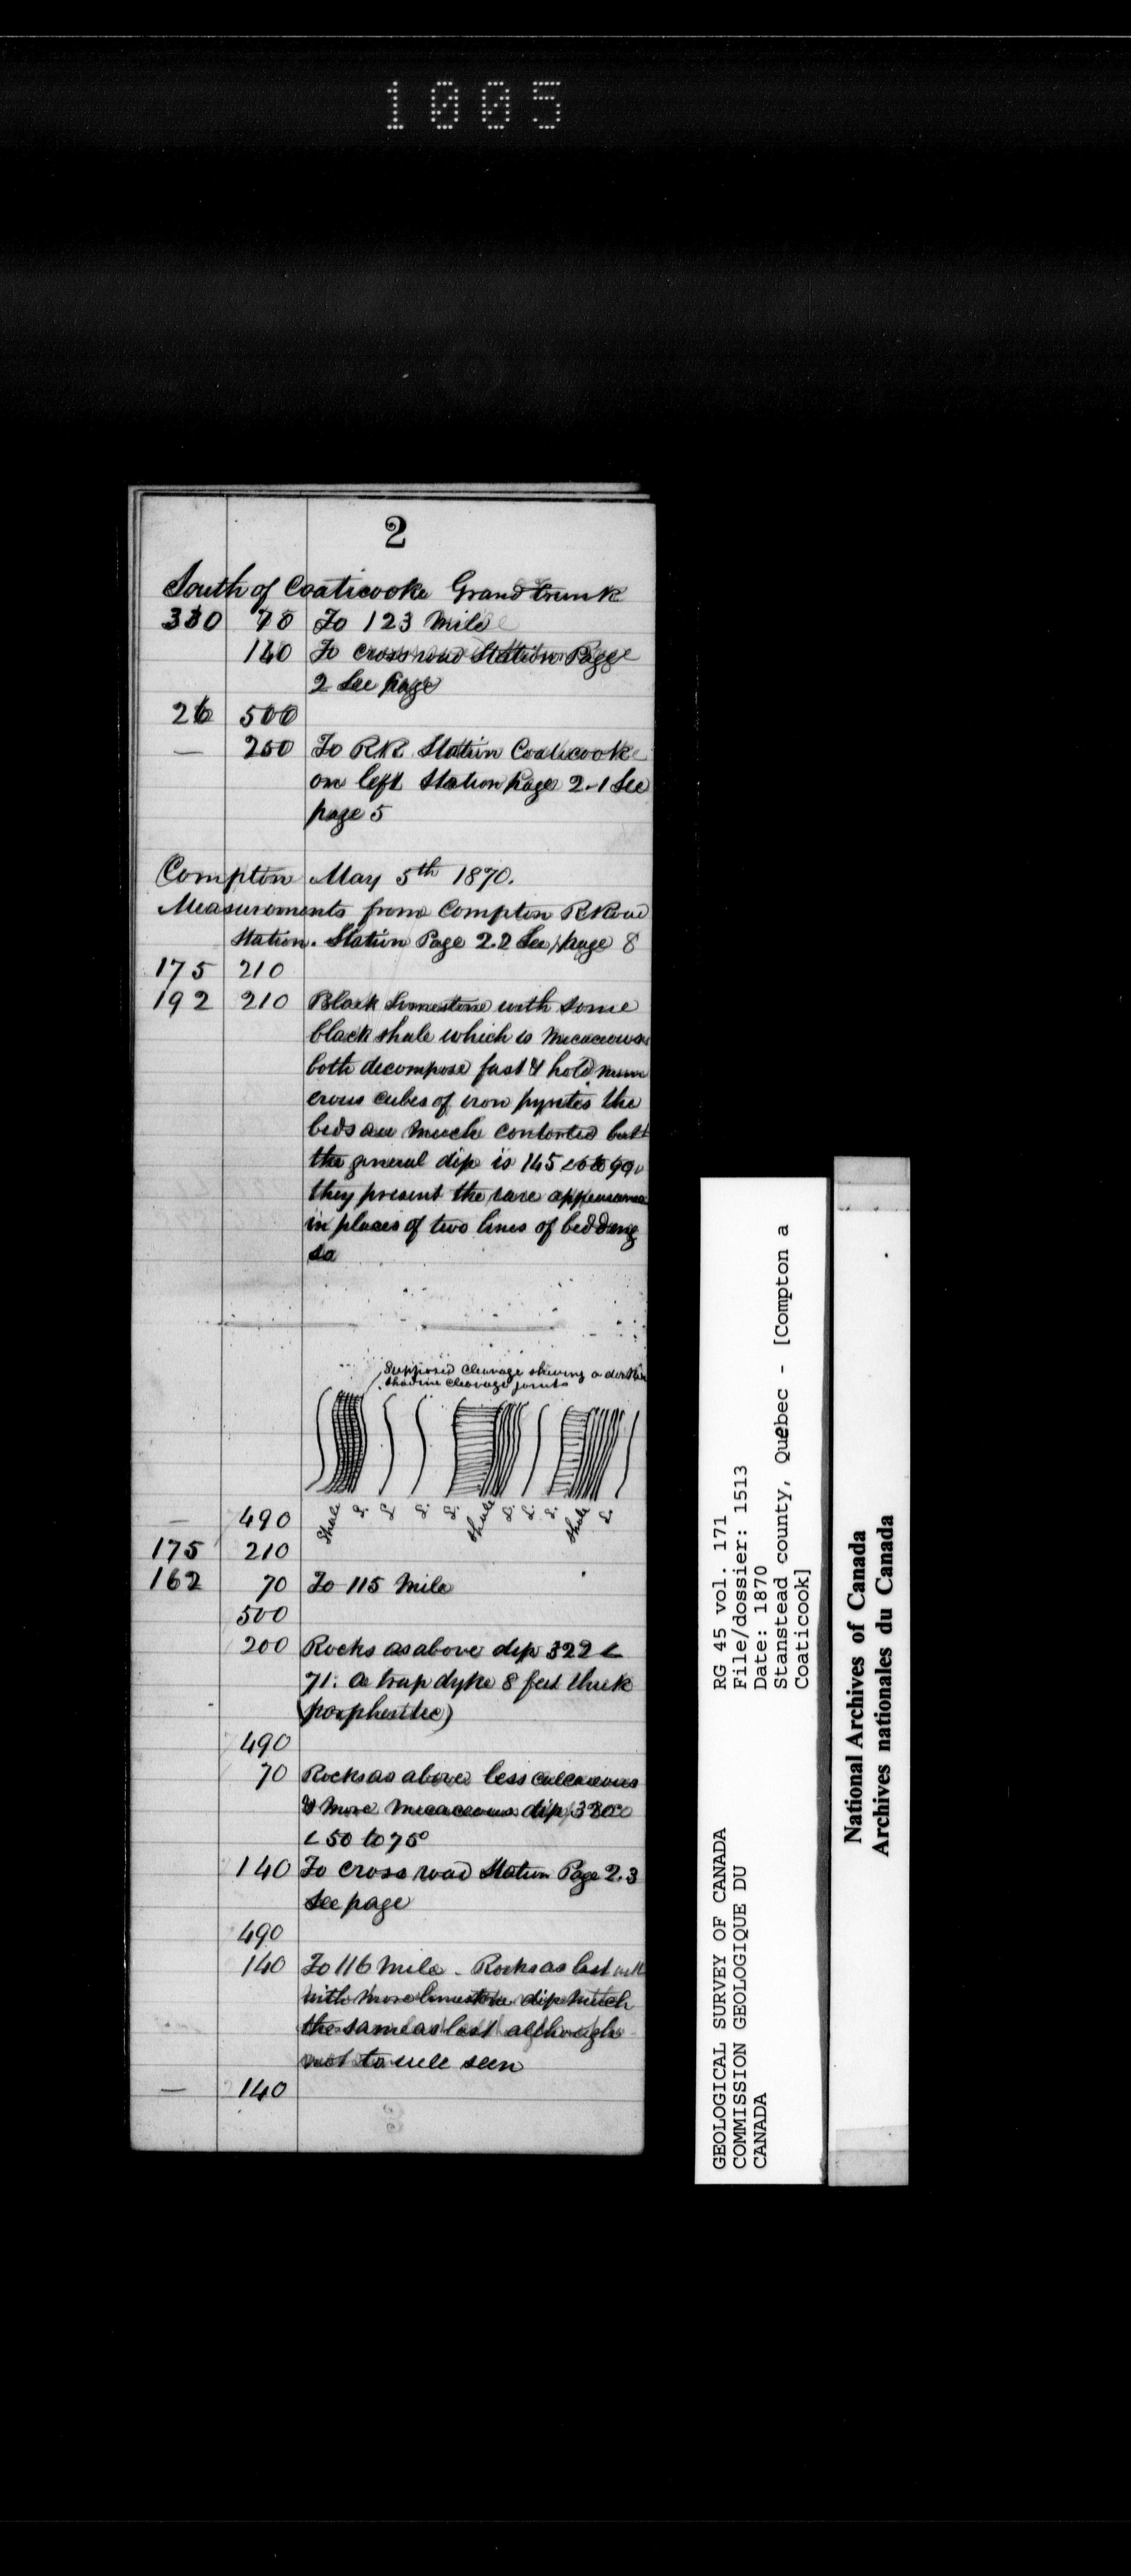 1005
2
South of Coaticooke Grand trunk
330 70 To 123 Mile
140 To cross road Station Page
2 See page
26 500
— 250 To RR Station Coaticooke
on left Station page 2-1 See
page 5
Compton May 5th 1870.
Measurements from Compton RRoad
Station. Station Page 2.2 See page 8
175 210
192 210 Black limestone with some
black shale which is micaceous
both decompose fast & hold num
erous cubes of iron pyrites the
beds are much contorted but
the general dip is 145 to 90
they present the rare appearance
in places of two lines of bedding
so
Supposed Cleavage shewing a
cleavage joints
Shale L. L. L. L. Shale L. L. L. Shale L.
— 490
175 210
162 70 To 115 Mile
500
200 Rocks as above dip 322 ∠
71. a trap dyke 8 feet thick
(porpheritic)
490
70 Rocks as above less calcareous
& more micaceous dip
∠ 50 to 75°
140 To cross road Station Page 2.3
See page
490
140 To 116 Mile - Rocks as last
with more limestone dip much
the same as last although
not to well seen
— 140
GEOLOGICAL SURVEY OF CANADA
COMMISSION GEOLOGIQUE DU
CANADA
RG 45 vol. 171
File/dossier: 1513
Date: 1870
Stanstead county, Quebec - [Compton a
Coaticook]
National Archives of Canada
Archives nationales du Canada